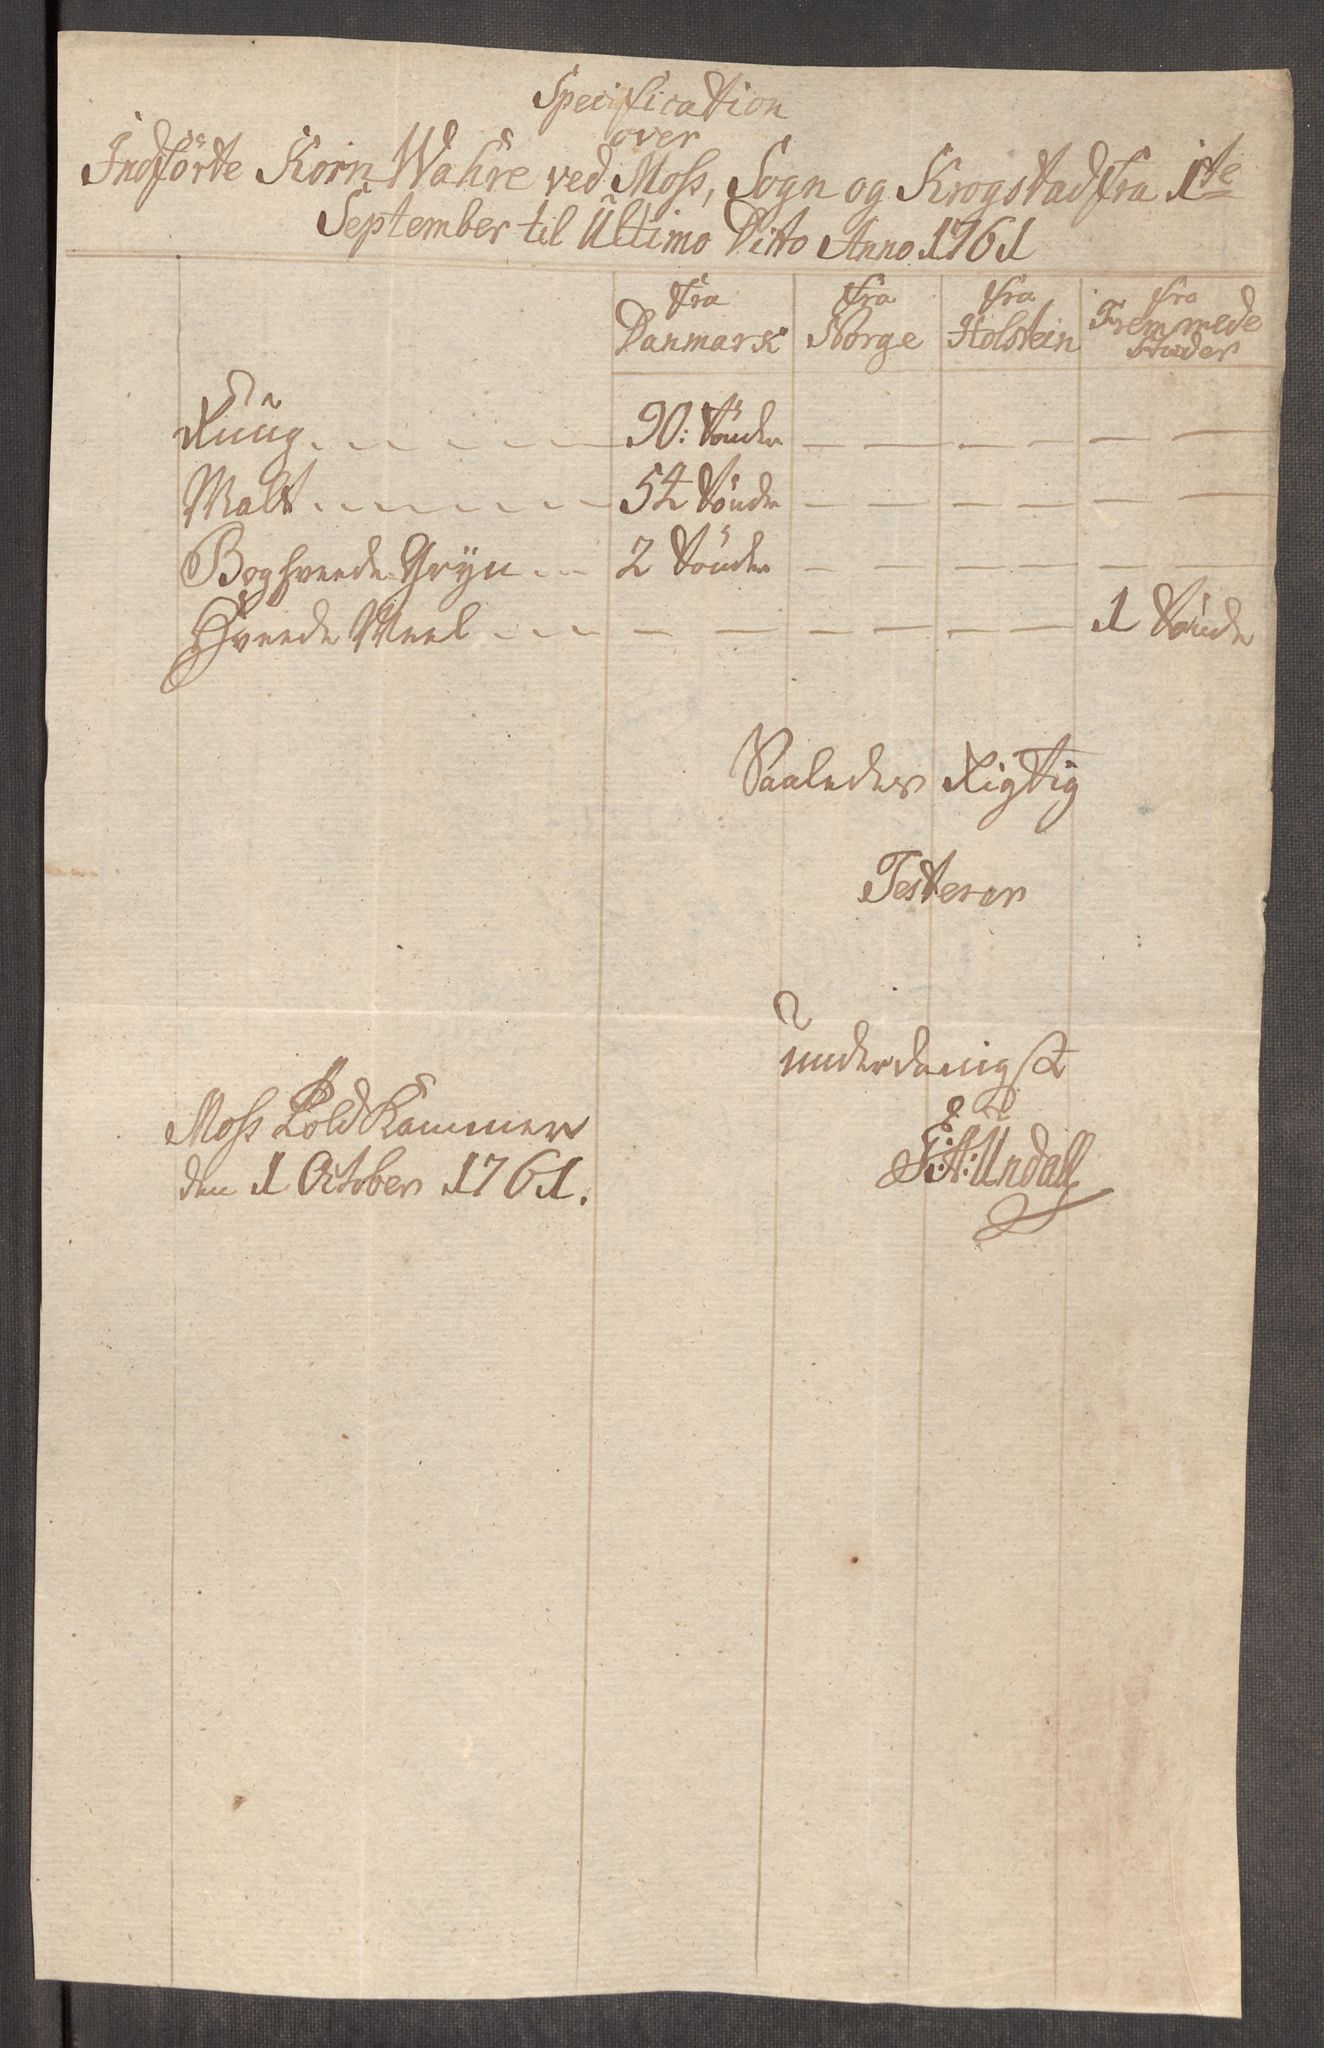 Specification
over
Indförte Korn Wahre ved Moss, Sogn og Krogstad fra 1te
September til Ultimo Dito Anno 1761
fra Danmark fra Norge fra Holstein fra Fremmede Stæder
Ruug 90: Tönder — — — — — —
Malt 54 Tönder — — — — — —
Boghveede Gryn 2 Tönder — — — — — —
Hveede Meel — — — — — — — 1 Tönde
Saaledes Rigtig
Testerer
underdanigst
Moss Told Kammer
den 1 October 1761.
Undall